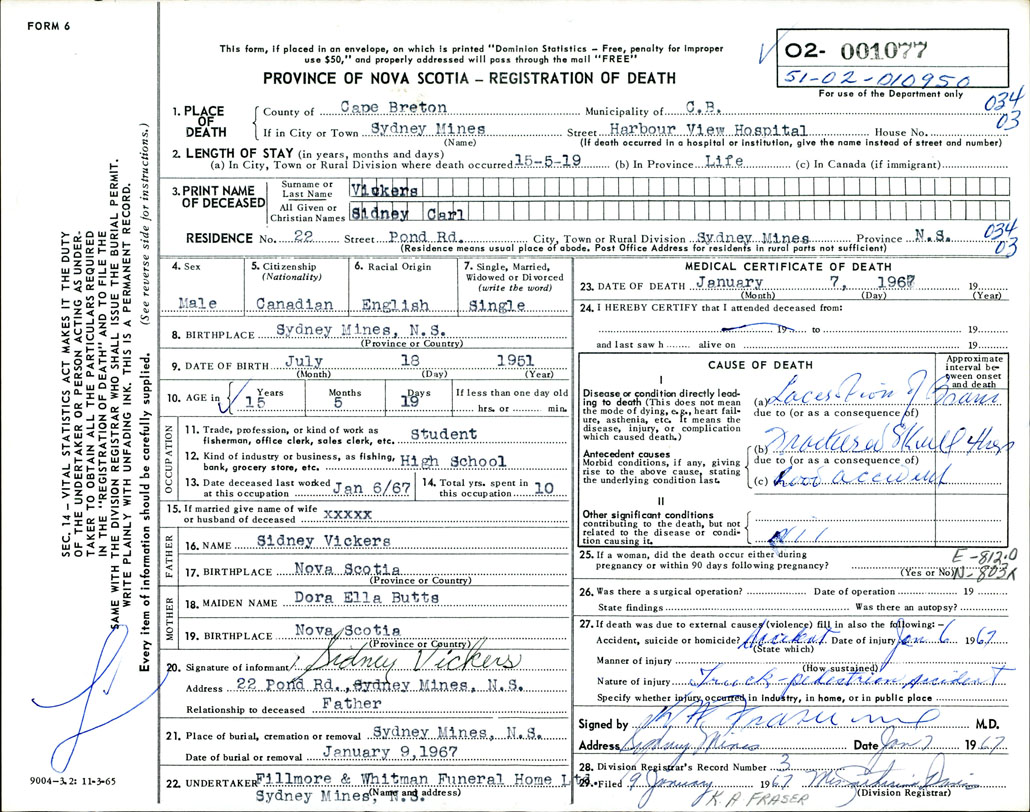 FORM 6
This form, if placed in an envelope, on which is printed "Dominion Statistics – Free, penalty for improper
use $50," and properly addressed will pass through the mail "FREE"
O2- 001077
51-02-010950
For use of the Department only
PROVINCE OF NOVA SCOTIA – REGISTRATION OF DEATH
034
03
1. PLACE OF DEATH
County of Cape Breton Municipality of C.B.
If in City or Town Sydney Mines Street Harbour View Hospital House No.
(Name) (If death occurred in a hospital or institution, give the name instead of street and number)
2. LENGTH OF STAY (in years, months and days)
(a) In City, Town or Rural Division where death occurred 15-5-19 (b) In Province Life (c) In Canada (if immigrant)
3. PRINT NAME OF DECEASED
Surname or Last Name Vickers
All Given or Christian Names Sidney Carl
034
03
RESIDENCE No. 22 Street Pond Rd. City, Town or Rural Division Sydney Mines Province N.S.
(Residence means usual place of abode. Post Office Address for residents in rural parts not sufficient)
4. Sex
Male
5. Citizenship
(Nationality)
Canadian
6. Racial Origin
English
7. Single, Married,
Widowed or Divorced
(write the word)
Single
8. BIRTHPLACE Sydney Mines, N.S.
(Province or Country)
9. DATE OF BIRTH July 18 1951
(Month) (Day) (Year)
10. AGE in
Years Months Days If less than one day old
15 5 19 hrs. or min.
OCCUPATION
11. Trade, profession, or kind of work as
fisherman, office clerk, sales clerk, etc. Student
12. Kind of industry or business, as fishing,
bank, grocery store, etc. High School
13. Date deceased last worked
at this occupation Jan 6/67
14. Total yrs. spent in
this occupation 10
15. If married give name of wife
or husband of deceased xxxxx
FATHER
16. NAME Sidney Vickers
17. BIRTHPLACE Nova Scotia
(Province or Country)
MOTHER
18. MAIDEN NAME Dora Ella Butts
19. BIRTHPLACE Nova Scotia
(Province or Country)
20. Signature of informant Sidney Vickers
Address 22 Pond Rd., Sydney Mines, N.S.
Relationship to deceased Father
21. Place of burial, cremation or removal Sydney Mines, N.S.
Date of burial or removal January 9,1967
22. UNDERTAKER Fillmore & Whitman Funeral Home Ltd.
(Name and address)
Sydney Mines, N.S.
MEDICAL CERTIFICATE OF DEATH
23. DATE OF DEATH January 7, 1967 19
(Month) (Day) (Year)
24. I HEREBY CERTIFY that I attended deceased from:
19 to 19
and last saw h alive on 19
CAUSE OF DEATH
Approximate
interval be-
tween onset
and death
I
Disease or condition directly lead-
ing to death (This does not mean
the mode of dying, e.g., heart fail-
ure, asthenia, etc. It means the
disease, injury, or complication
which caused death.)
(a) Laceration of Brain
due to (or as a consequence of)
Antecedent causes
Morbid conditions, if any, giving
rise to the above cause, stating
the underlying condition last.
(b) Fractured Skull 4 hrs
due to (or as a consequence of)
(c) Road accident
II
Other significant conditions
contributing to the death, but not
related to the disease or condi-
tion causing it.
Nil
25. If a woman, did the death occur either during
pregnancy or within 90 days following pregnancy?
(Yes or No)
E-812.0
N-803X
26. Was there a surgical operation? Date of operation 19
State findings Was there an autopsy?
27. If death was due to external causes (violence) fill in also the following: –
Accident, suicide or homicide? Accident Date of injury Jan 6 1967
(State which)
Manner of injury
(How sustained)
Nature of injury Truck-pedestrian accident
Specify whether injury occurred in industry, in home, or in public place
Signed by K A Fraser M.D.
Address Sydney Mines Date Jan 7 1967
28. Division Registrar's Record Number 3
29. Filed 9 January 1967
(Division Registrar)
K. A FRASER
SEC. 14 – VITAL STATISTICS ACT MAKES IT THE DUTY
OF THE UNDERTAKER OR PERSON ACTING AS UNDER-
TAKER TO OBTAIN ALL THE PARTICULARS REQUIRED
IN THE "REGISTRATION OF DEATH" AND TO FILE THE
SAME WITH THE DIVISION REGISTRAR WHO SHALL ISSUE THE BURIAL PERMIT.
WRITE PLAINLY WITH UNFADING INK. THIS IS A PERMANENT RECORD.
Every item of information should be carefully supplied. (See reverse side for instructions.)
9004-3.2: 11-3-65